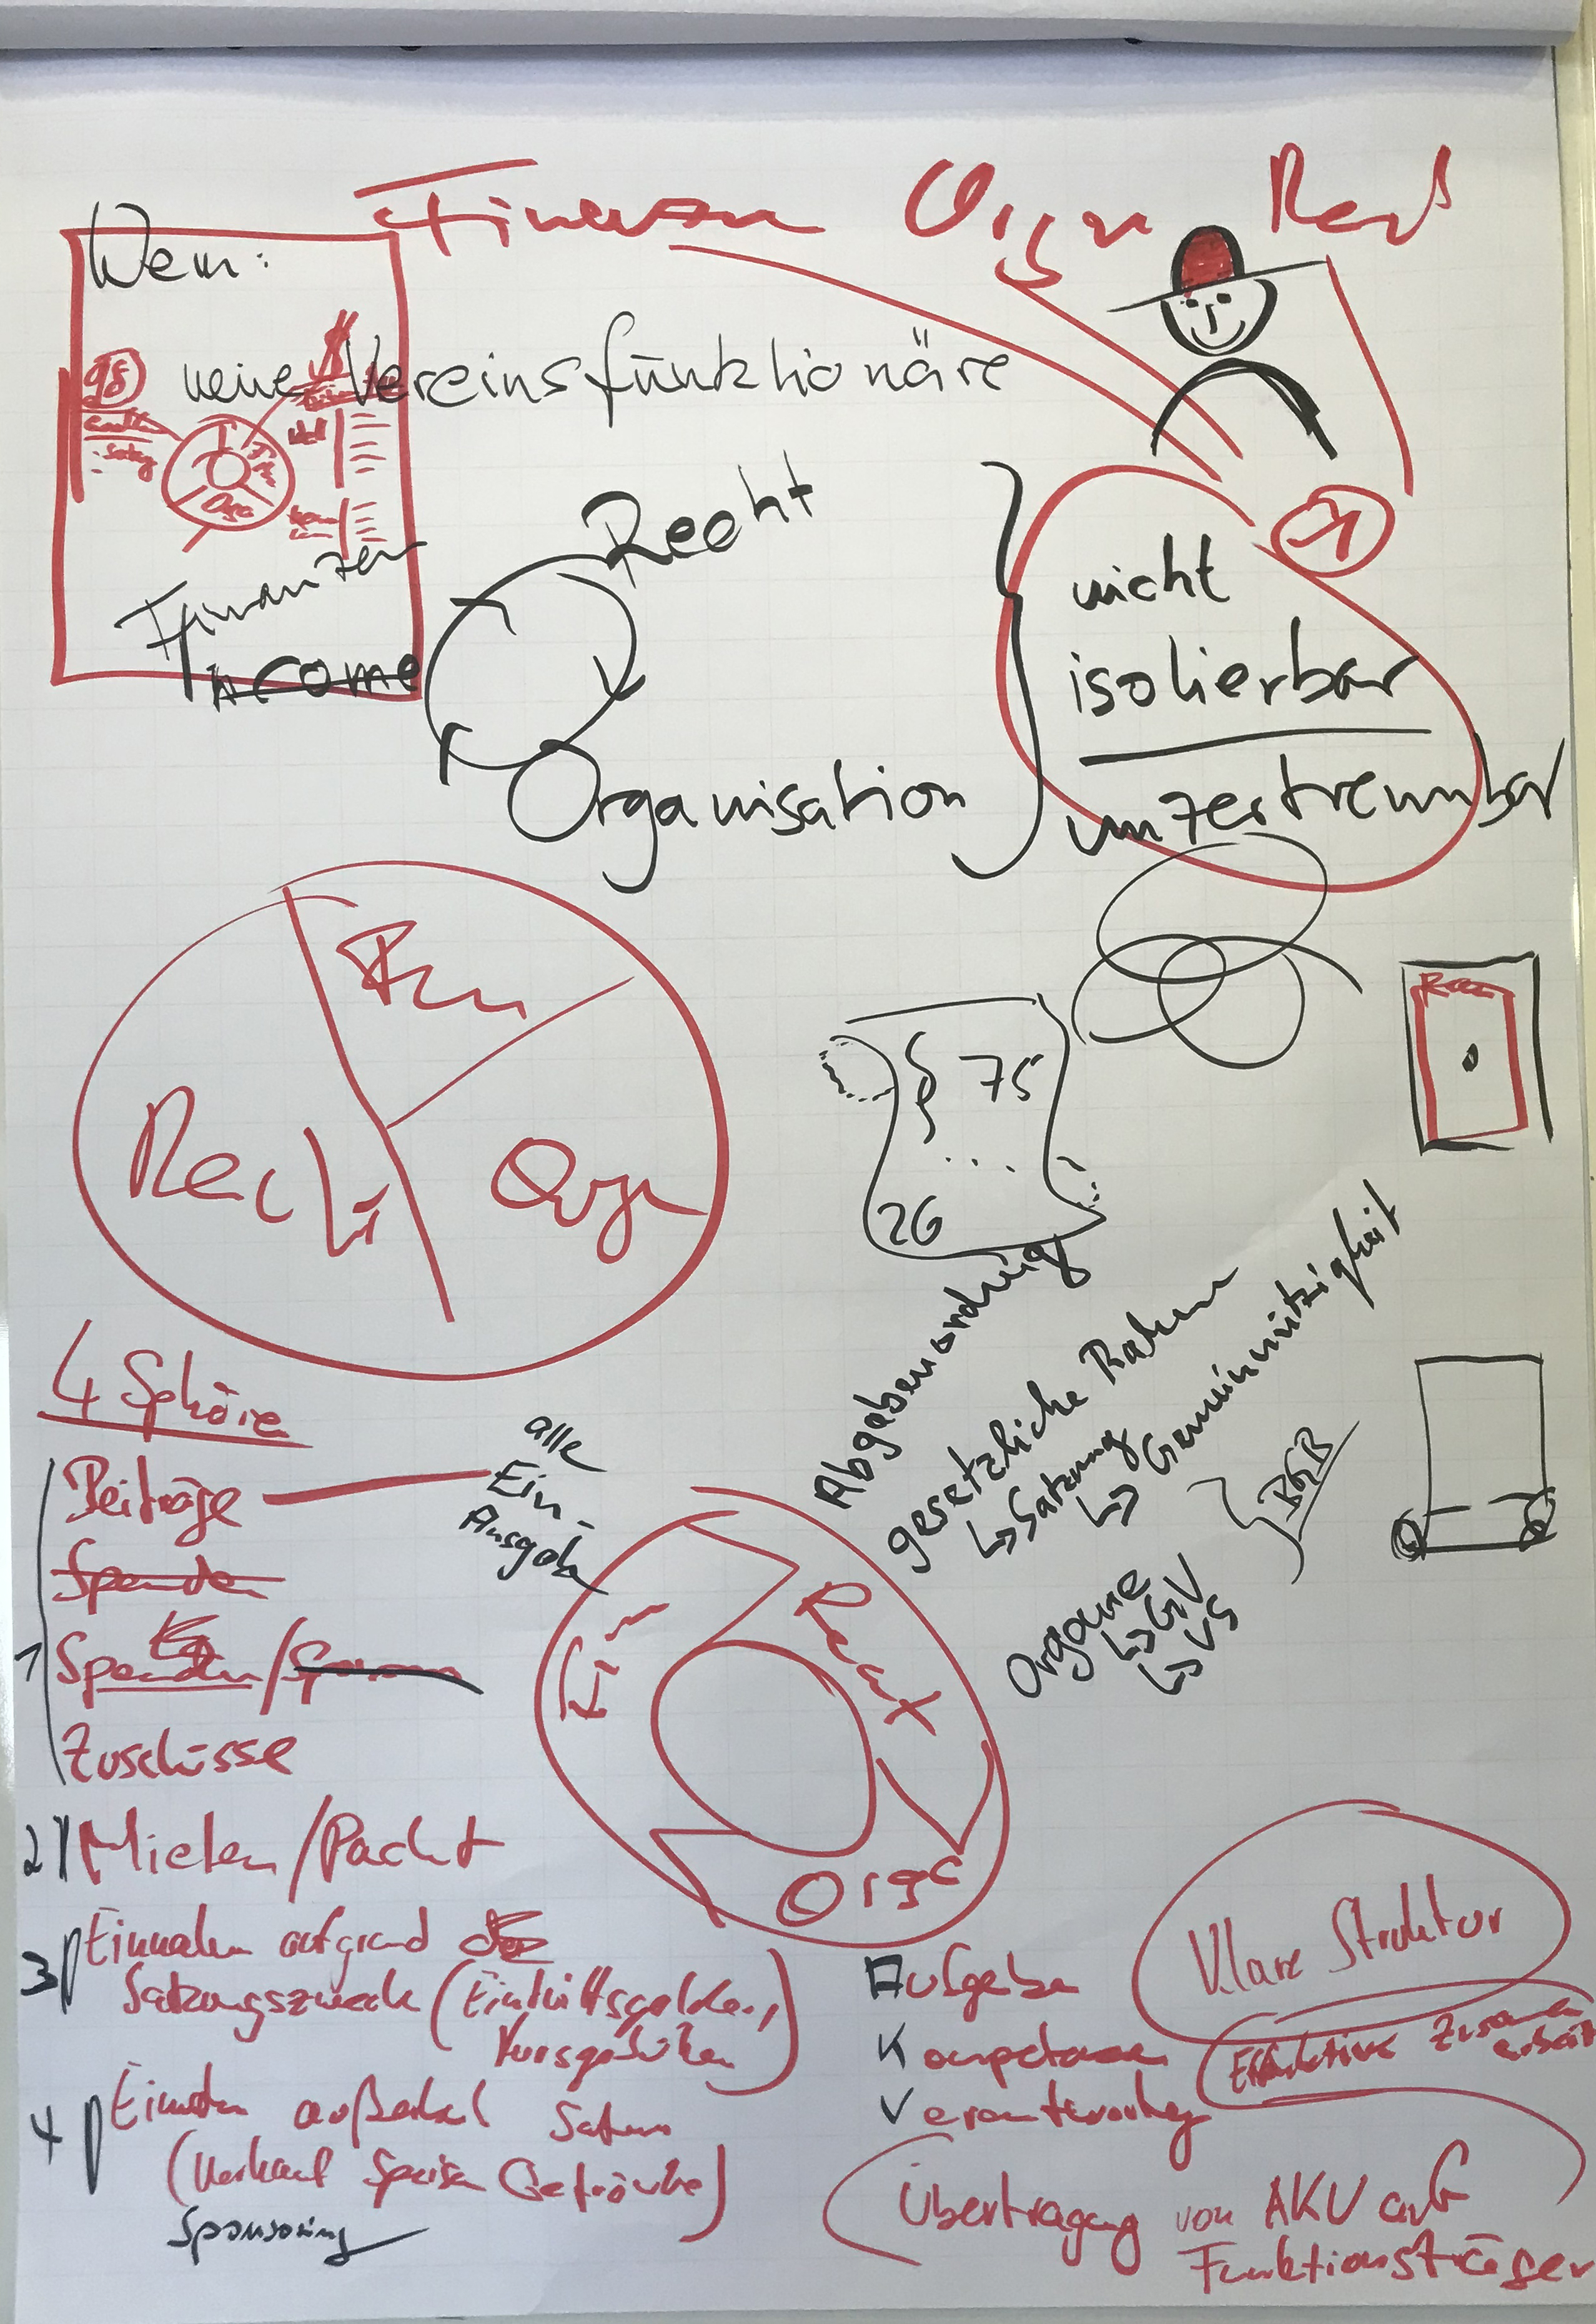 Orga
Wem:
neue Vereinsfunktionäre
Orga
Recht
Finanzen
income
Organisation
nicht
isolierbar
unzertrennbar
Fin
Recht
Orga
§ 75
...
26
Abgabenordnung
gesetzliche Rahmen
↳ Satzung
↳ Gemeinnützigkeit
BGB
Organe
↳ GV
↳ VS
4 Sphäre
Beiträge
alle
Ein-
Ausgab
Spenden
1 Spenden /
Zuschüsse
2 Mieten / Pacht
3 Einnahmen aufgrund
Satzungszweck (Eintrittsgelder,
Kursgebühren)
4 Einnahmen außerhalb Satzung
(Verkauf Speisen Getränke)
Sponsoring
Fin
Recht
Orga
Aufgaben
Kompetenzen
Verantwortung
Klare Struktur
Effektive Zusammen
arbeit
Übertragung von AKV auf
Funktionsträger